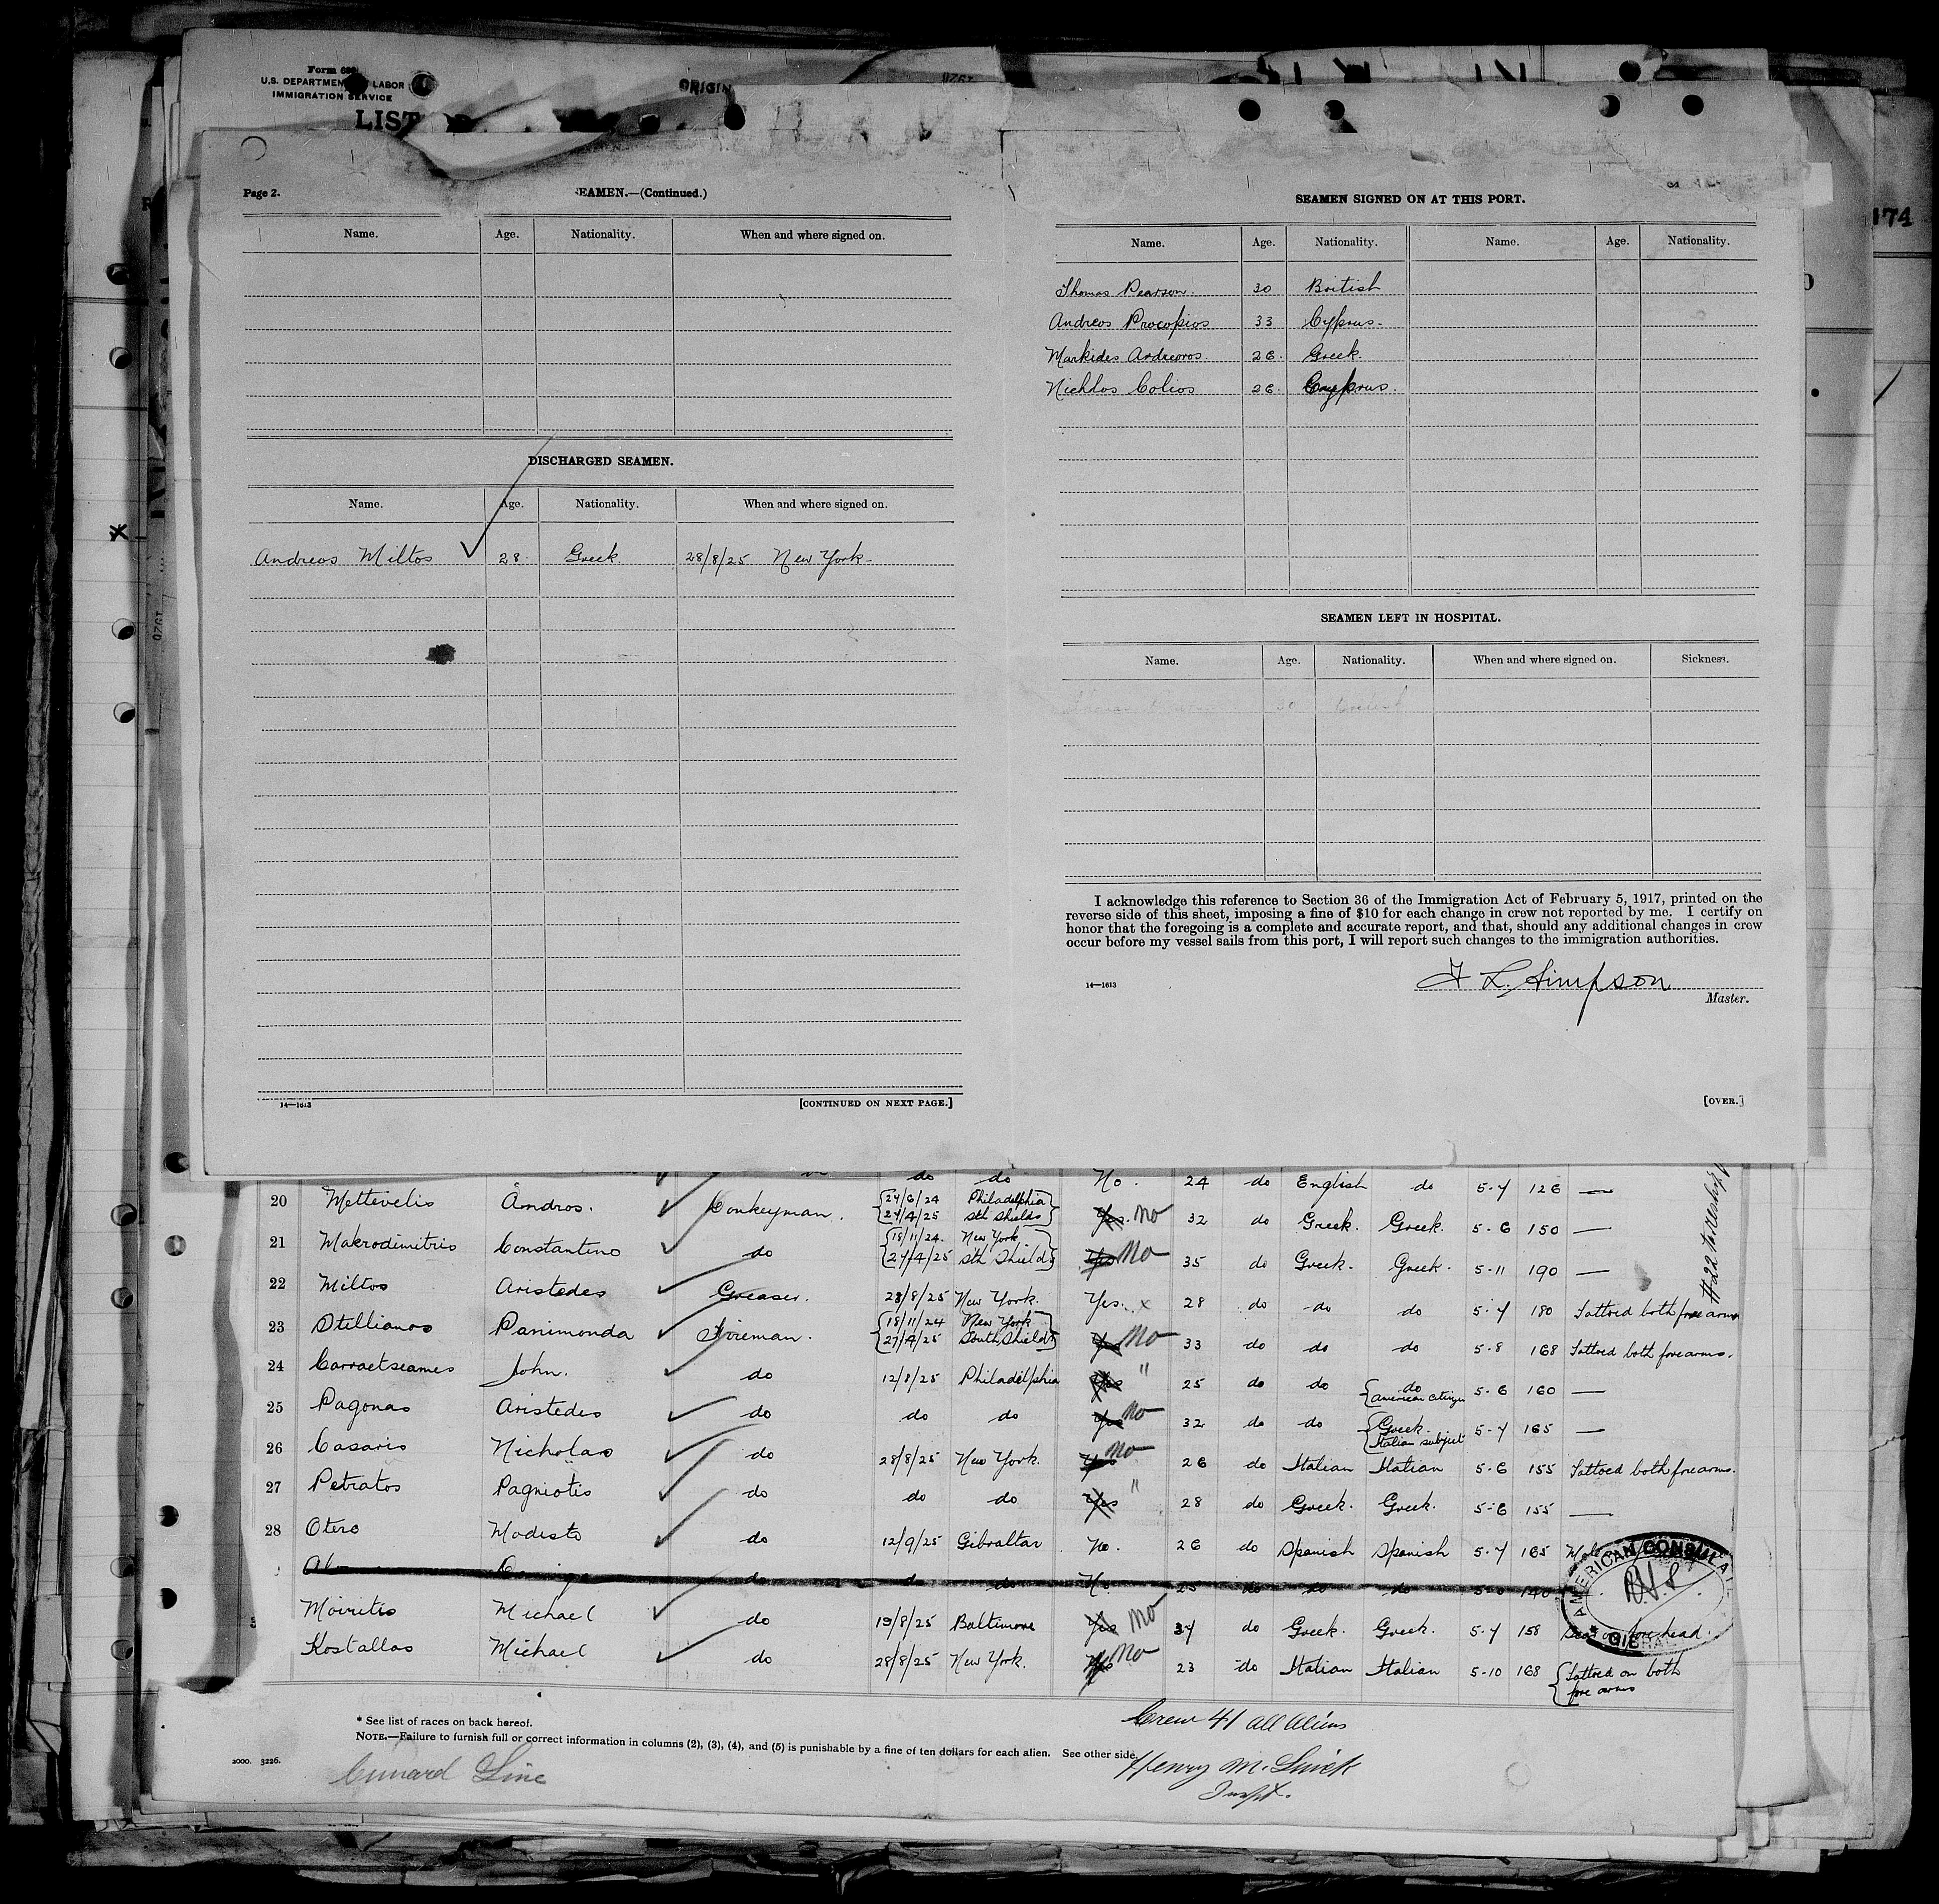 Form 680
U.S. DEPARTMENT LABOR
IMMIGRATION SERVICE
ORIGIN
LIST
174
Page 2.
SEAMEN.—(Continued.)
Name. Age. Nationality. When and where signed on.
DISCHARGED SEAMEN.
Name. Age. Nationality. When and where signed on.
Andreos Miltos 28 Greek 28/8/25 New York
14—1613
[CONTINUED ON NEXT PAGE.]
SEAMEN SIGNED ON AT THIS PORT.
Name. Age. Nationality. Name. Age. Nationality.
Thomas Pearson 30 British
Andreos Procopios 33 Cyprus
Markides Andreoros 26 Greek
Nichlos Colios 26 Cyprus
SEAMEN LEFT IN HOSPITAL.
Name. Age. Nationality. When and where signed on. Sickness.
30 British
I acknowledge this reference to Section 36 of the Immigration Act of February 5, 1917, printed on the
reverse side of this sheet, imposing a fine of $10 for each change in crew not reported by me. I certify on
honor that the foregoing is a complete and accurate report, and that, should any additional changes in crew
occur before my vessel sails from this port, I will report such changes to the immigration authorities.
L. Simpson
14—1613
Master.
[OVER.]
do do No. 24 do English do 5-7 126 —
20 Mettevelis Andros. Donkeyman. 24/6/24 Philadelphia 27/4/25 Sth Shields Yes. No 32 do Greek. Greek. 5-6 150 —
21 Makrodimitris Constantino do 18/11/24. New York 27/4/25 Sth Shields Yes No 35 do Greek. Greek. 5-11 190 —
22 Miltos Aristedes Greaser. 28/8/25 New York. Yes. x 28 do do do 5-7 180 Tattoed both fore arms
23 Stellianos Panimonda Fireman. 18/11/24 New York 27/4/25 South Shields Yes No 33 do do do 5-8 168 Tattoed both forearms.
24 Carraetseames John. do 12/8/25 Philadelphia Yes " 25 do do do American citizen 5-6 160 —
25 Pagonas Aristedes do do do Yes No 32 do do Greek Italian subject 5-7 165 —
26 Casaris Nicholas do 28/8/25 New York. Yes No 26 do Italian Italian 5-6 155 Tattoed both forearms.
27 Petratos Pagniotis do do do Yes " 28 do Greek. Greek. 5-6 155 —
28 Otero Modesto do 12/9/25 Gibraltar No. 26 do Spanish Spanish 5-7 165
do do do No. 25 do do do 140
Moiritis Michael do 19/8/25 Baltimore Yes No 34 do Greek. Greek. 5-7 158 Scar on forehead.
Kostallas Michael do 28/8/25 New York. Yes No 23 do Italian Italian 5-10 168 Tattoed on both fore arms
AMERICAN CONSULATE
GIBRALTAR
* See list of races on back hereof.
NOTE.—Failure to furnish full or correct information in columns (2), (3), (4), and (5) is punishable by a fine of ten dollars for each alien. See other side.
2000. 3226.
Cunard Line
Crew 41 All Aliens
Henry M.
Inspt.